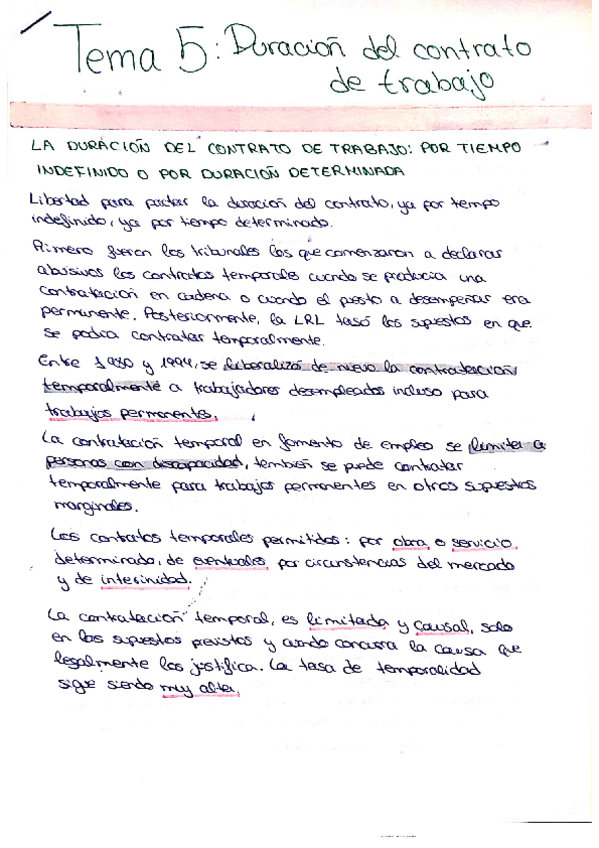 Tema 5: Duración del contrato
de trabajo
LA DURACIÓN DEL CONTRATO DE TRABAJO: POR TIEMPO
INDEFINIDO O POR DURACIÓN DETERMINADA
Libertad para pactar la duración del contrato, ya por tiempo
indefinido, ya por tiempo determinado.
Primero fueron los tribunales los que comenzaron a declarar
abusivos los contratos temporales cuando se producía una
contratación en cadena o cuando el puesto a desempeñar era
permanente. Posteriormente, la LRL tasó los supuestos en que
se podía contratar temporalmente.
Entre 1980 y 1994, se liberalizó de nuevo la contratación
temporalmente a trabajadores desempleados incluso para
trabajos permanentes.
La contratación temporal en fomento de empleo se limita a
personas con discapacidad, también se puede contratar
temporalmente para trabajos permanentes en otros supuestos
marginales.
Los contratos temporales permitidos: por obra o servicio
determinado, de eventuales por circunstancias del mercado
y de interinidad.
La contratación temporal, es limitada y causal, solo
en los supuestos previstos y cuando concurra la causa que
legalmente los justifica. La tasa de temporalidad
sigue siendo muy alta.